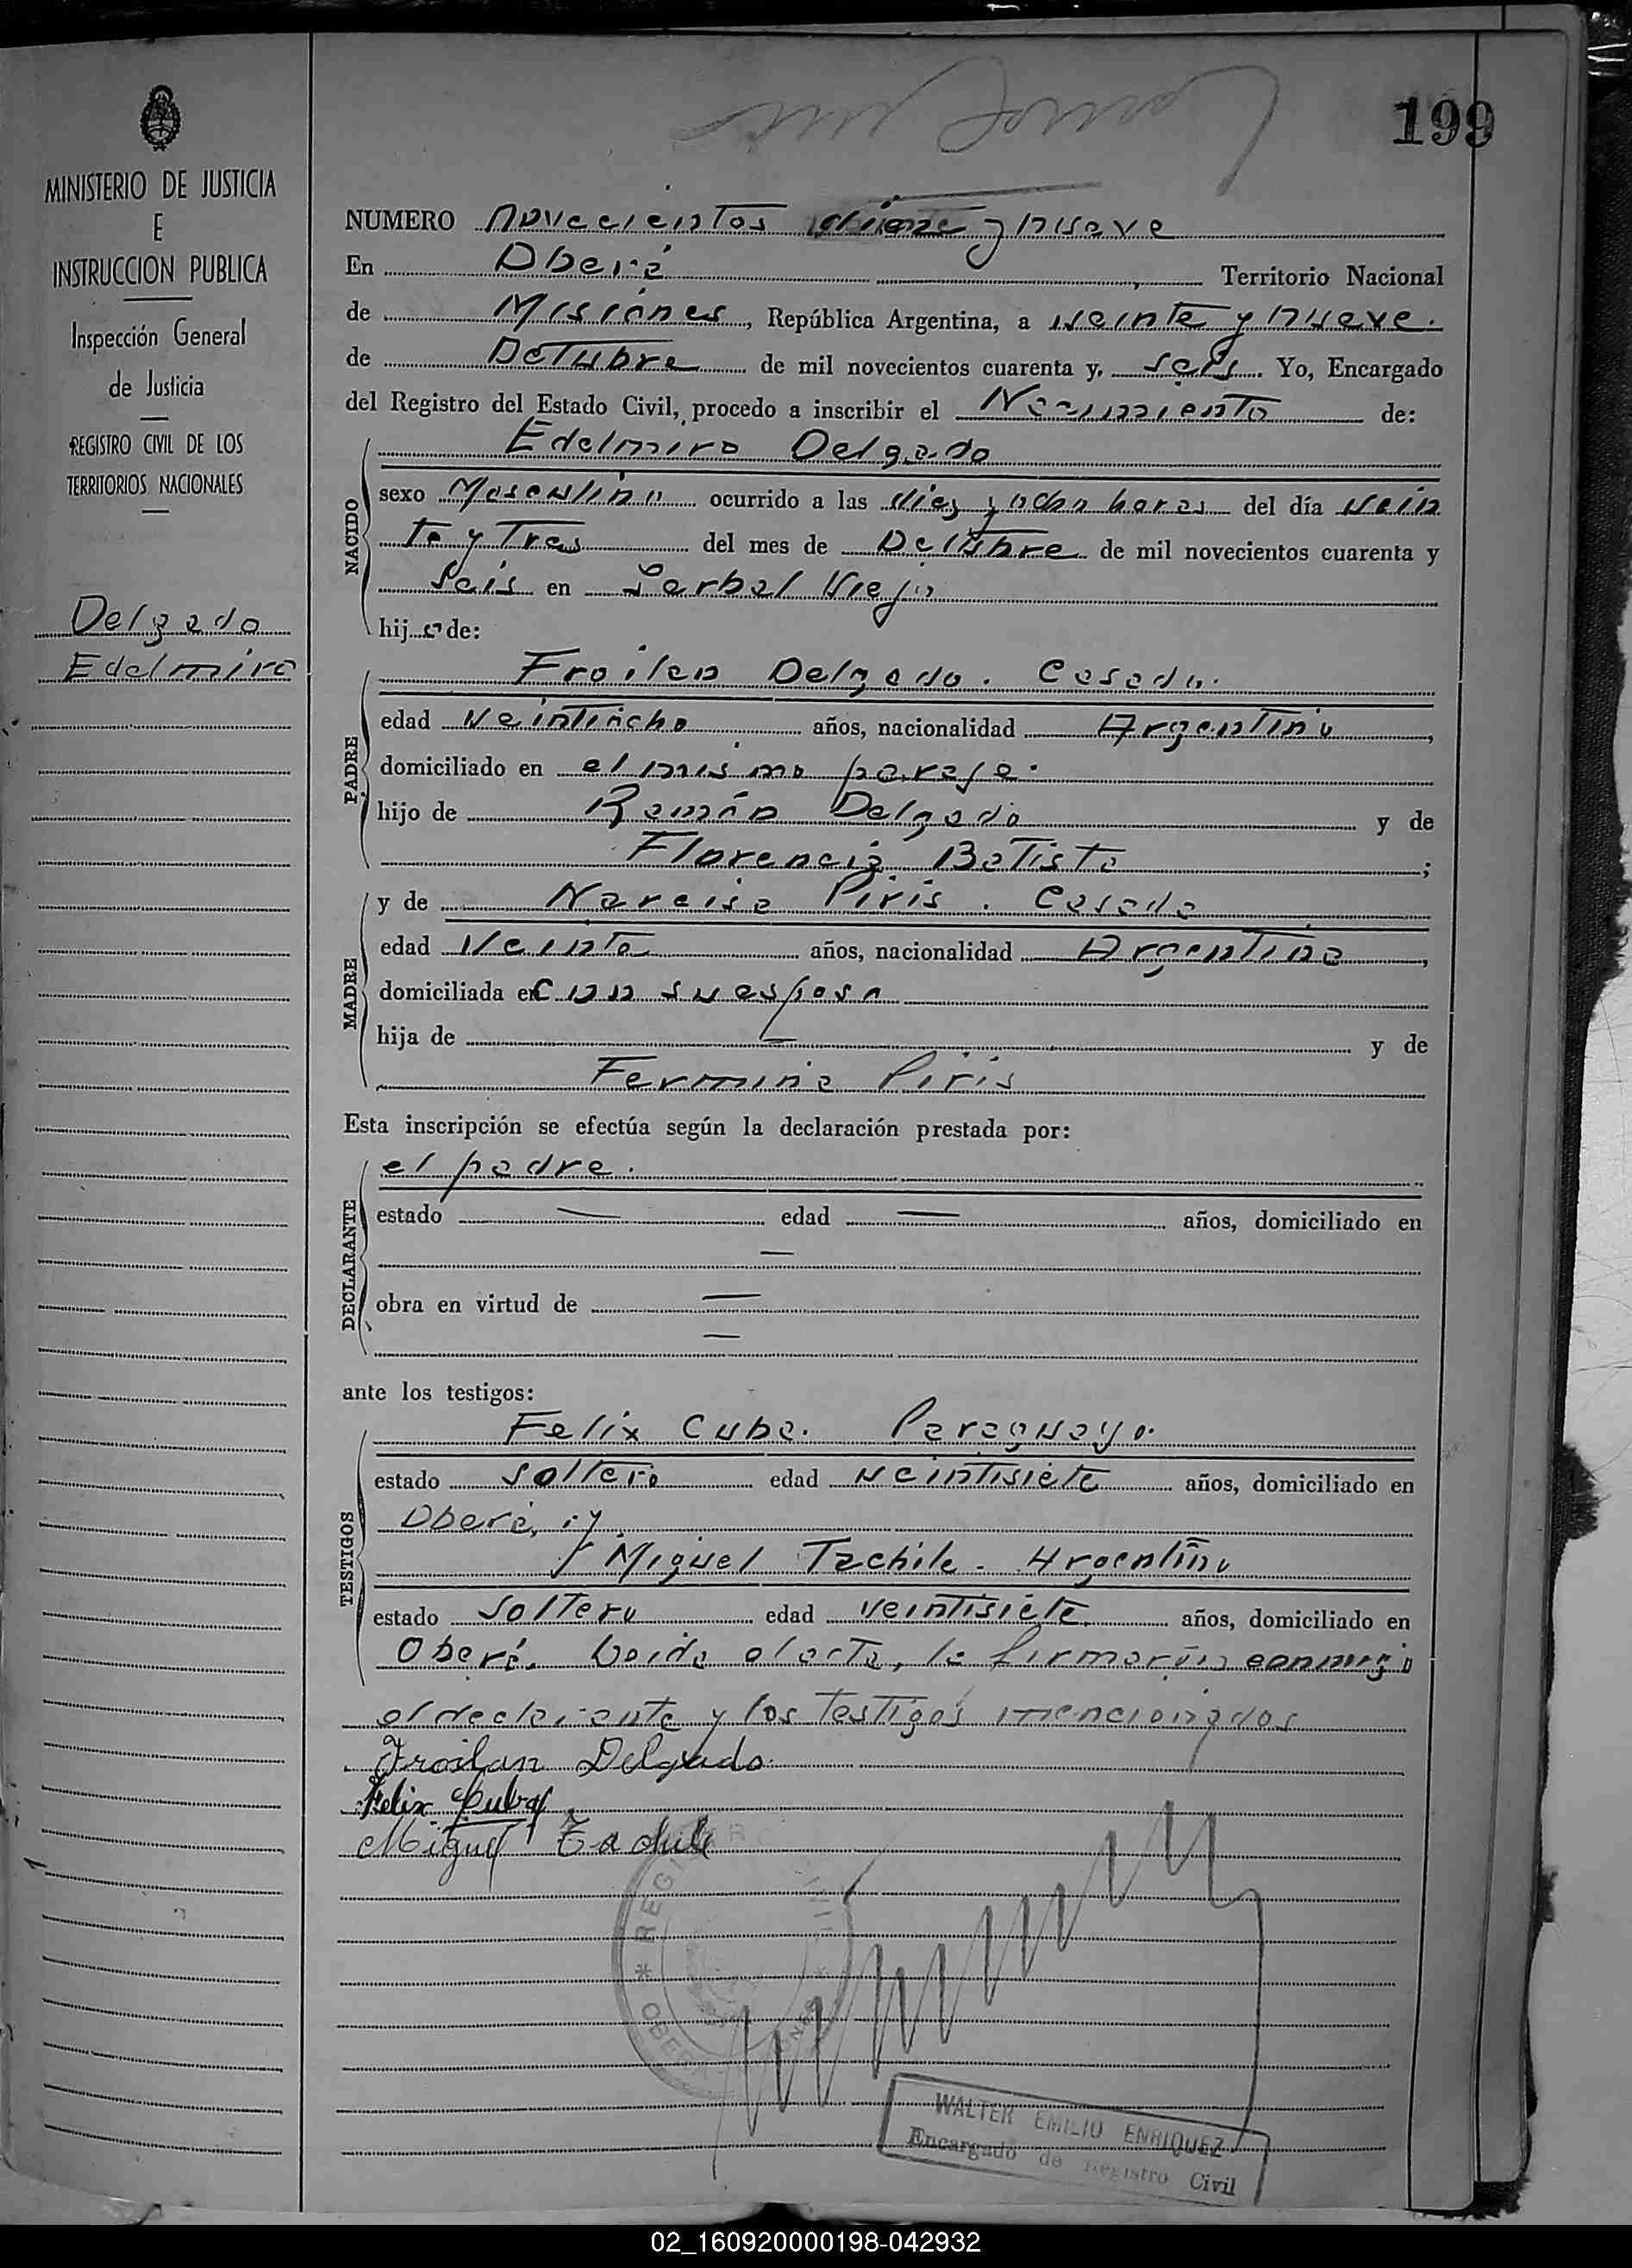 199
MINISTERIO DE JUSTICIA
E
INSTRUCCION PUBLICA
Inspección General
de Justicia
REGISTRO CIVIL DE LOS
TERRITORIOS NACIONALES
Delgado
Edelmiro
NUMERO novecientos y nueve
En Oberá Territorio Nacional
de Misiones, República Argentina, a veinte y nueve.
de Octubre de mil novecientos cuarenta y seis. Yo, Encargado
del Registro del Estado Civil, procedo a inscribir el Nacimiento de:
NACIDO
Edelmiro Delgado
sexo Masculino ocurrido a las diez y ocho horas del día vein
te y tres del mes de Octubre de mil novecientos cuarenta y
seis en Yerbal Viejo
hijo de:
PADRE
Froilan Delgado. Casado.
edad veintiocho años, nacionalidad Argentino,
domiciliado en el mismo paraje.
hijo de Ramón Delgado y de
Florencia Batista;
MADRE
y de Narcisa Piris. Casada
edad veinte años, nacionalidad Argentina,
domiciliada en con su esposo
hija de — y de
Fermina Piris
Esta inscripción se efectúa según la declaración prestada por:
DECLARANTE
el padre.
estado — edad — años, domiciliado en
—
obra en virtud de —
—
ante los testigos:
TESTIGOS
Felix Cuba. Paraguayo.
estado soltero edad veintisiete años, domiciliado en
Oberá, y
Miguel Tachile. Argentino
estado soltero edad veintisiete años, domiciliado en
Oberá. Leida el acta, la firmarón conmigo
el declarante y los testigos mencionados
Froilan Delgado
Felix Cuba
Miguel Tachile
REGISTRO CIVIL
OBERA
WALTER EMILIO ENRIQUEZ
Encargado de Registro Civil
02_160920000198-042932